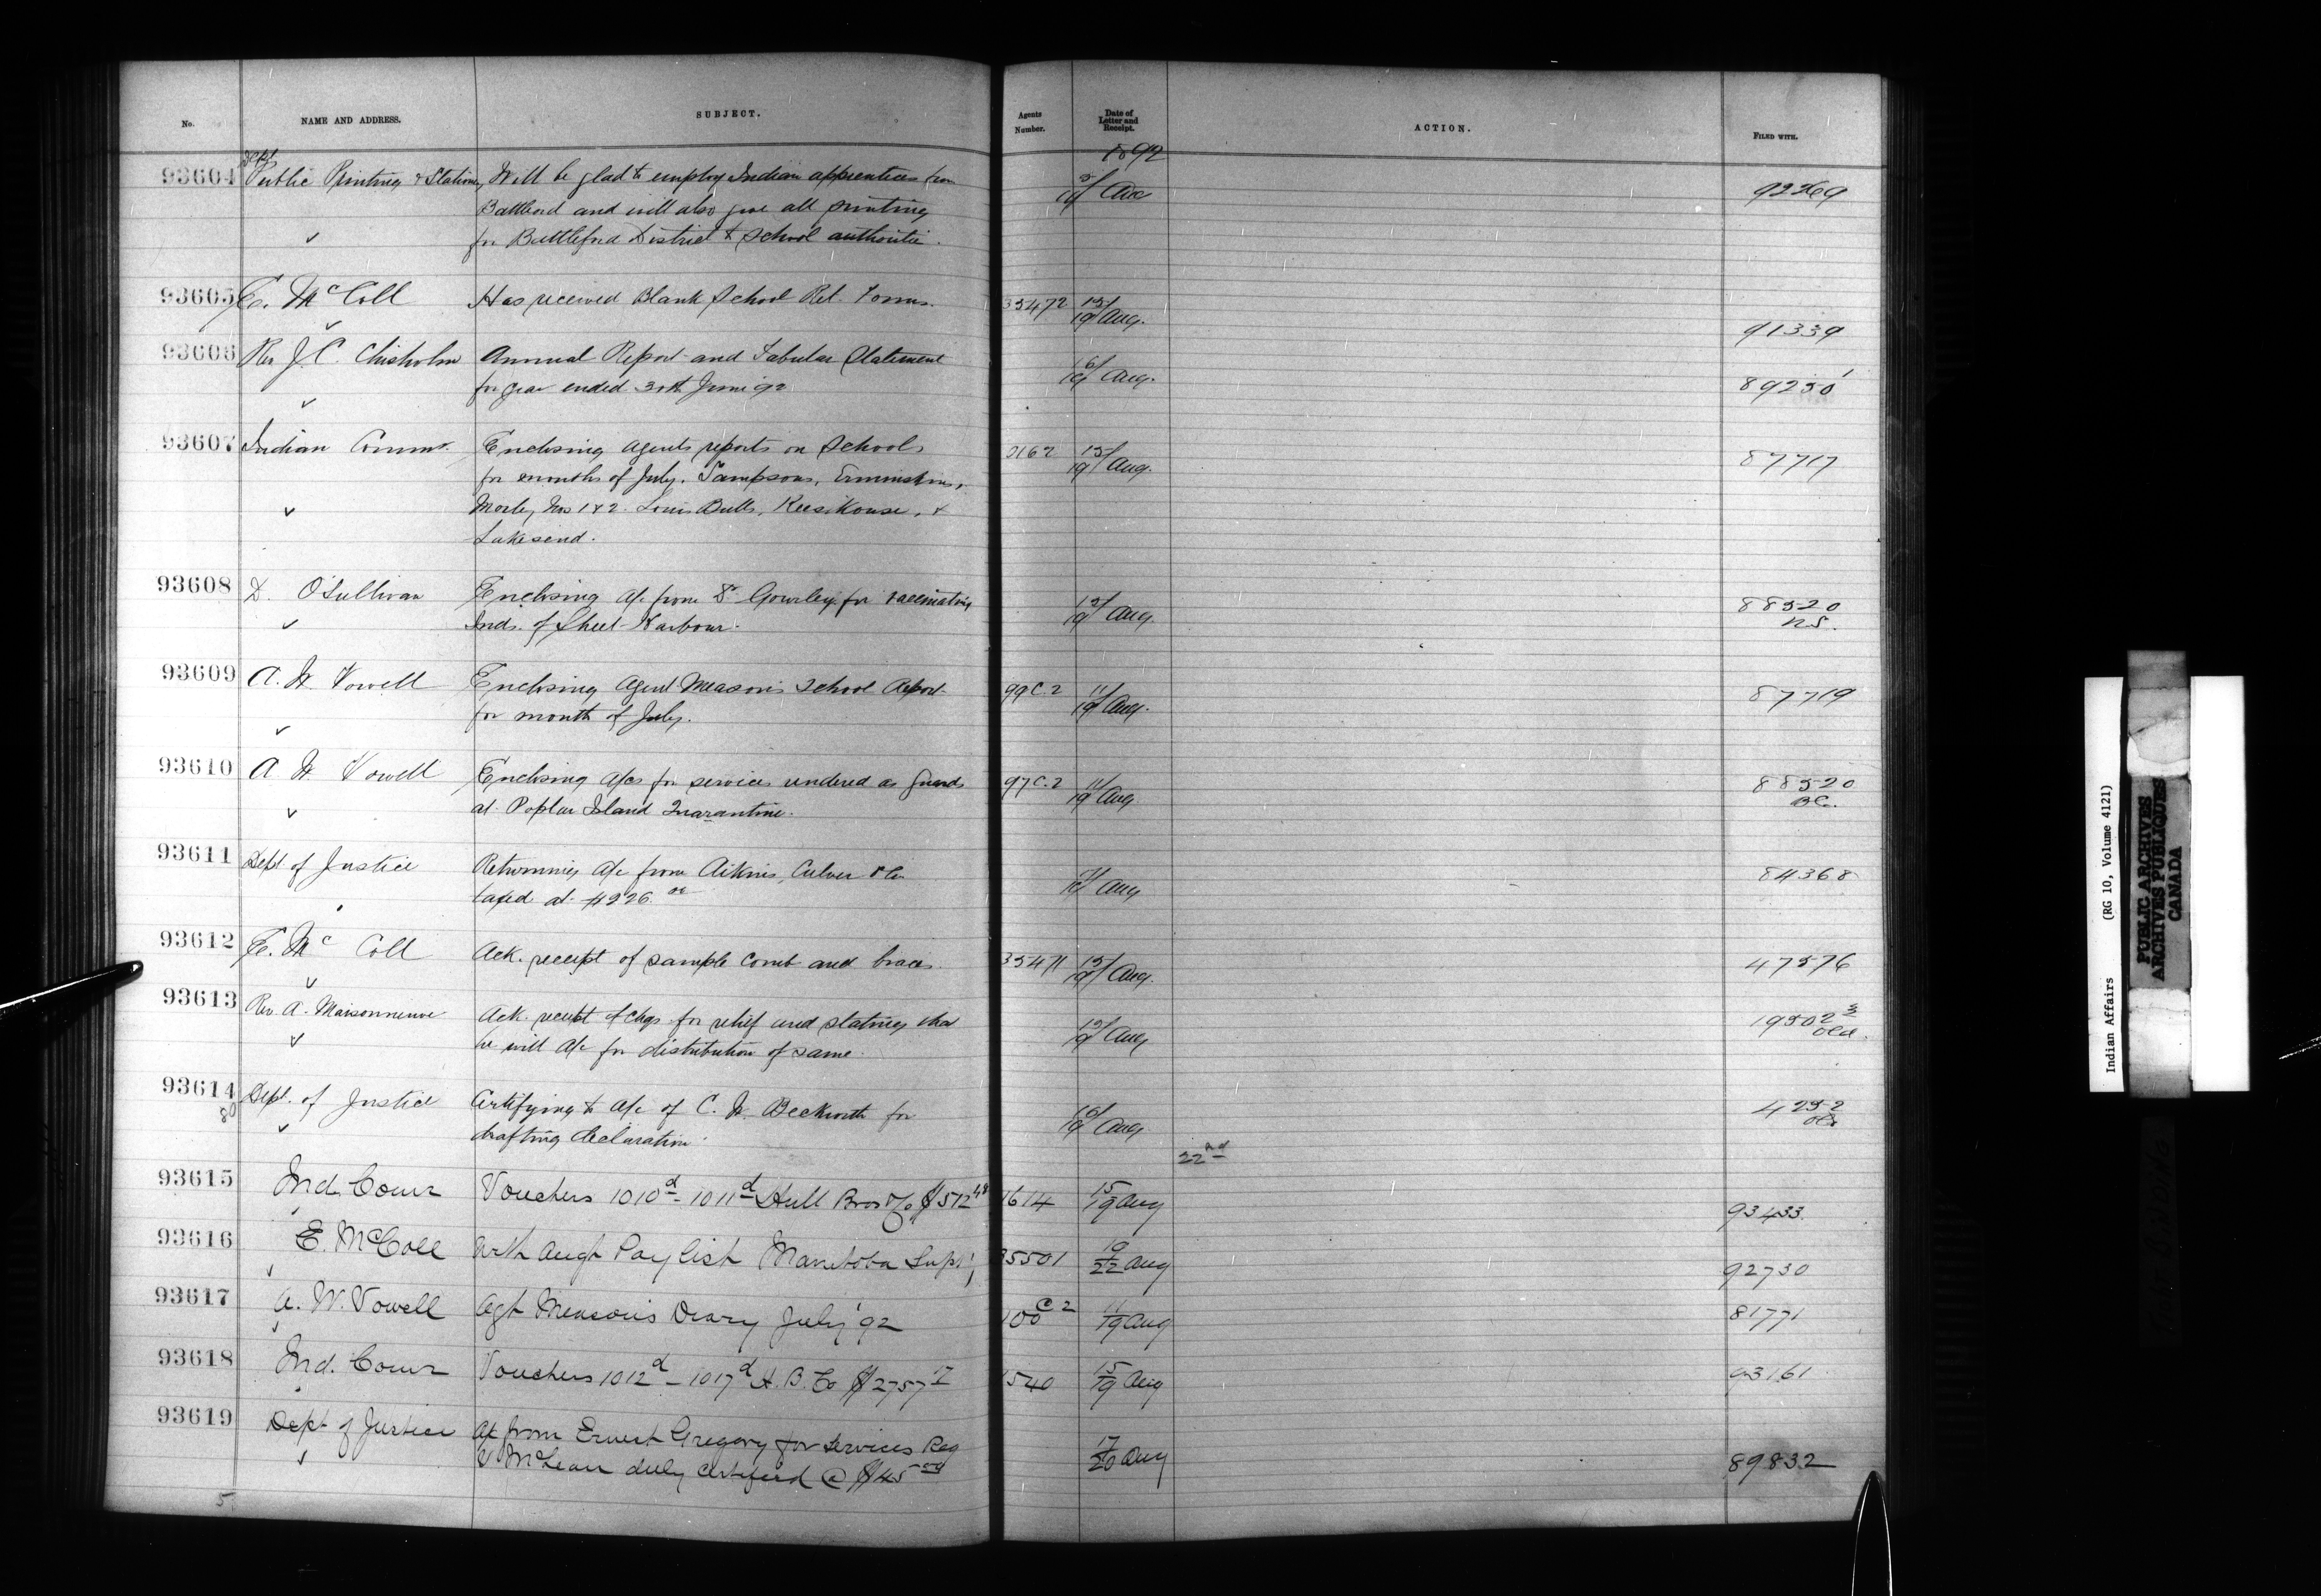 No. NAME AND ADDRESS. SUBJECT. Agents Number. Date of Letter and Receipt. ACTION. FILED WITH.
1892
93604 Dept Public Printing & Stationy Will be glad to employ Indian apprentices from 19 Aug 92269
Battleford and will also give all printing
for Battleford District to School authoritie.
93605 E. McColl Has received Blank School Ret. Forms. 35472 15/19 Aug. 91339
93606 Rev J. C. Chisholm Annual Report and Tabular Statement 16/19 Aug. 89250
for year ended 30th June '92
93607 Indian Commr. Enclosing agents reports on Schools 15/19 Aug. 87717
for months of July. Sampsons, Ermineskins,
Morley Nos 1 & 2. Louis Bulls, Keesikouse, &
Lakesend.
93608 D. O'Sullivan Enclosing a/c from Dr Gourley for vaccinating 15/19 Aug. 88520
Inds. of Sheet Harbour. N.S.
93609 A. W. Vowell Enclosing Agent Meason's School Report 99 C.2 11/19 Aug. 87719
for month of July.
93610 A. W. Vowell Enclosing a/cs for services rendered as guards 97 C.2 11/19 Aug. 88520
at Poplar Island Quarantine. B.C.
93611 Dept. of Justice Returning a/c from Aikins, Culver & Co Aug 84368
taxed at $226.00
93612 E. McColl Ack. receipt of sample comb and braces. 35471 15/19 Aug. 47576
93613 Rev. A. Maisonneuve Ack. receipt of chqs. for relief and stating that 15/19 Aug 19502 3
he will a/c for distribution of same. Old.
93614 Dept. of Justice Certifying to a/c of C. W. Beckwith for 16/19 Aug. 4252
80 drafting declaration. Old
22nd
93615 Ind. Comr Vouchers 1010d - 1011d Hull Bros $512 48 1614 15/19 Aug 93433
93616 E. McColl With Augt Pay list Manitoba Supt; 35501 19/22 Aug 92730
93617 A. W. Vowell Agt Meason's Diary July '92 100 C 2 11/19 Aug 81771
93618 Ind. Comr Vouchers 1012d - 1017d H. B. Co $2757 17 1540 15/19 Aug 93161
93619 Dept of Justice a/c from Ernest Gregory for services Reg 17/20 Aug 89832
V McLean duly certified @ $45 00
5
Indian Affairs (RG 10, Volume 4121)
PUBLIC ARCHIVES
ARCHIVES PUBLIQUES
CANADA